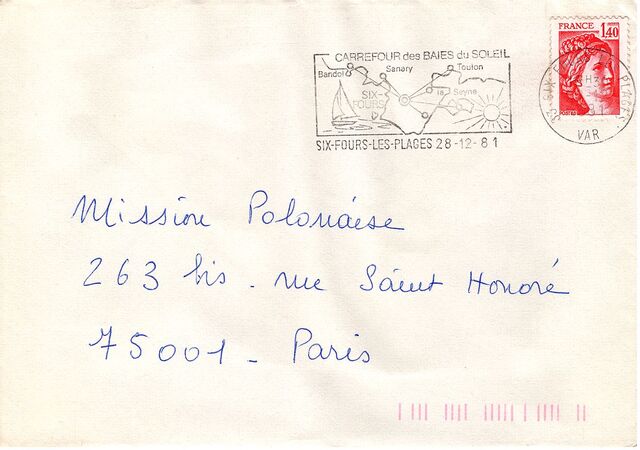 CARREFOUR des BAIES du SOLEIL
Bandol
Sanary
Toulon
SIX-FOURS
la Seyne
SIX-FOURS-LES-PLAGES 28-12-81
FRANCE
1,40
VAR
Mission Polonaise
263 bis - rue Saint Honoré
75001 - Paris